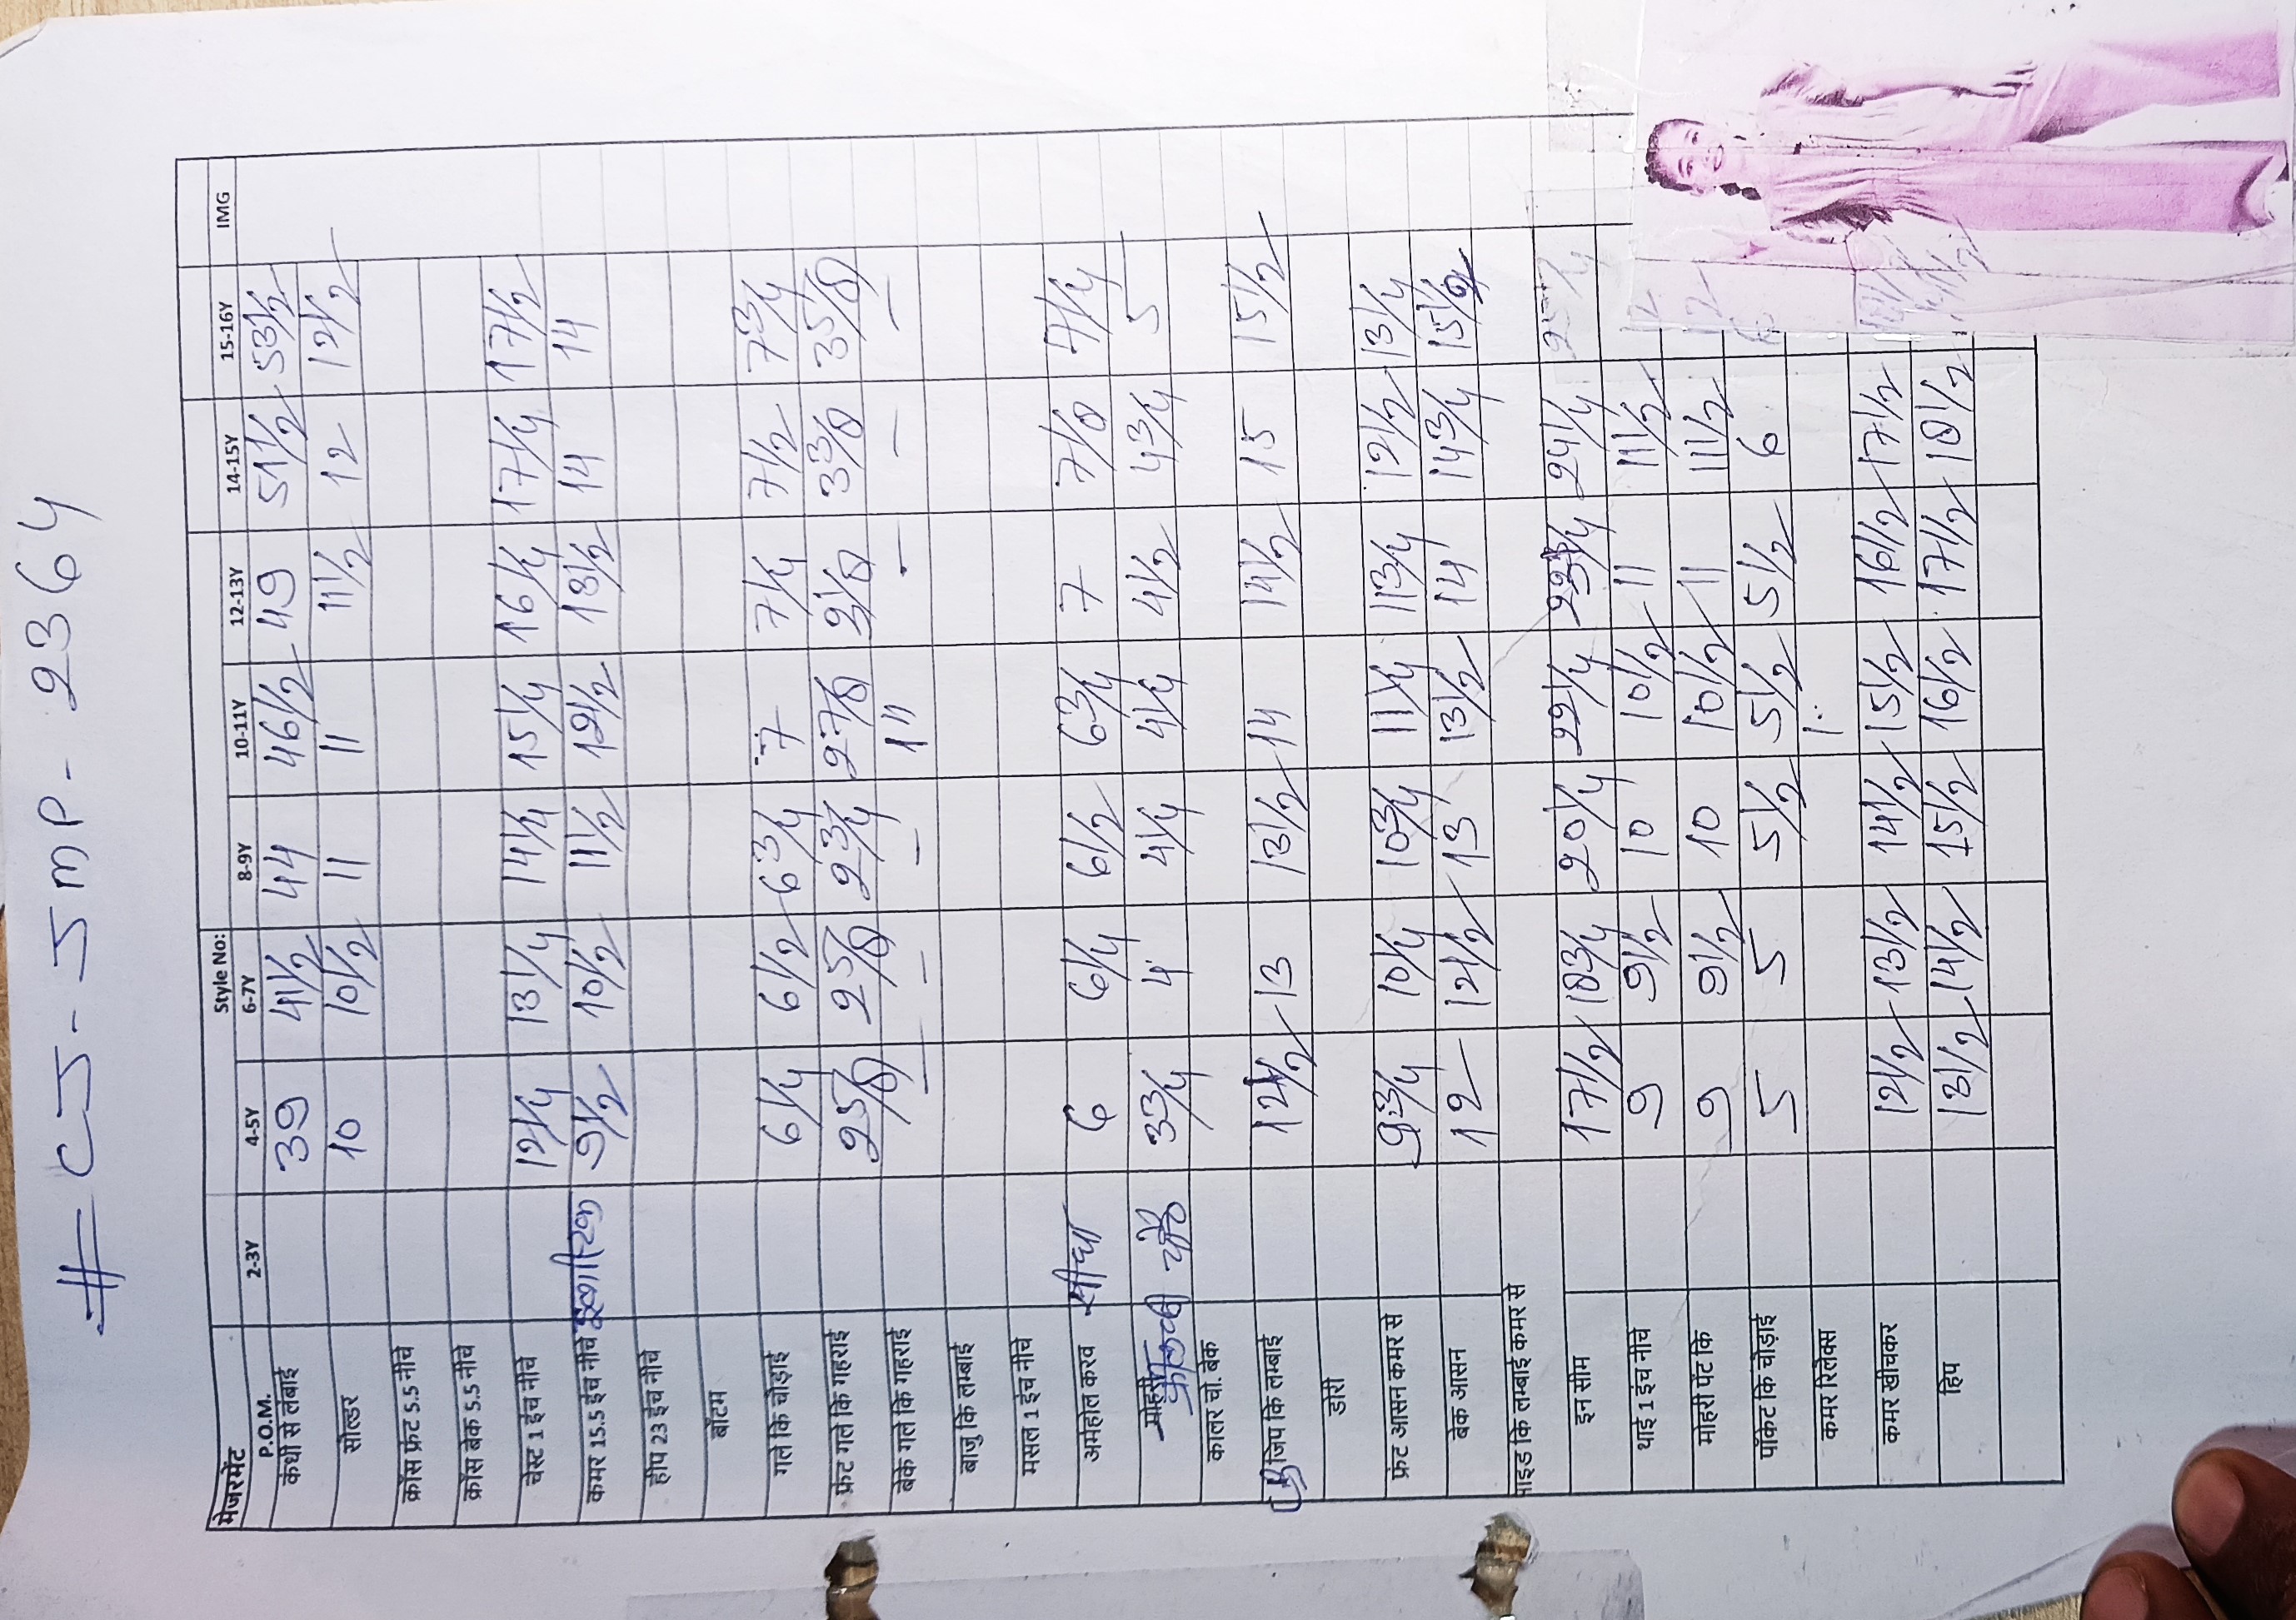 # CJ-JMP-2364
मेजरमेंट Style No:
P.O.M. 2-3Y 4-5Y 6-7Y 8-9Y 10-11Y 12-13Y 14-15Y 15-16Y IMG
कंधी से लंबाई 39 41 1/2 44 46 1/2 49 51 1/2 53 1/2
सोल्डर 10 10 1/2 11 11 11 1/2 12 12 1/2
क्रॉस फ्रंट 5.5 नीचे
क्रॉस बेक 5.5 नीचे
चेस्ट 1 इंच नीचे 12 1/4 13 1/4 14 1/4 15 1/4 16 1/4 17 1/4 17 1/2
कमर 15.5 इंच नीचे 9 1/2 10 1/2 11 1/2 12 1/2 13 1/2 14 14
हीप 23 इंच नीचे
बॉटम
गले कि चौड़ाई 6 1/4 6 1/2 6 3/4 7 7 1/4 7 1/2 7 3/4
फ्रंट गले कि गहराई 2 5/8 2 5/8 2 3/4 2 7/8 3 1/8 3 3/8 3 5/8
बेक गले कि गहराई — — — 1" - — —
बाजु कि लम्बाई
मसल 1 इंच नीचे
अमेहोल करव सीधा 6 6 1/4 6 1/2 6 3/4 7 7 1/8 7 1/4
मोहरी 3 3/4 4 4 1/4 4 1/4 4 1/2 4 3/4 5
कालर चो. बेक
जिप कि लम्बाई 12 1/2 13 13 1/2 14 14 1/2 15 15 1/2
डोरी
फ्रंट आसन कमर से 9 3/4 10 1/4 10 3/4 11 1/4 11 3/4 12 1/2 13 1/4
बेक आसन 12 12 1/2 13 13 1/2 14 14 3/4 15 1/2
साइड कि लम्बाई कमर से
इन सीम 17 1/2 18 3/4 20 1/4 22 1/4 23 1/4 24 1/4
थाई 1 इंच नीचे 9 9 1/2 10 10 1/2 11 11 1/2 12
मोहरी पेंट कि 9 9 1/2 10 10 1/2 11 11 1/2 12
पॉकेट कि चौड़ाई 5 5 5 1/2 5 1/2 5 1/2 6 6
कमर रिलेक्स
कमर खीचकर 12 1/2 13 1/2 14 1/2 15 1/2 16 1/2 17 1/2
हिप 13 1/2 14 1/2 15 1/2 16 1/2 17 1/2 18 1/2